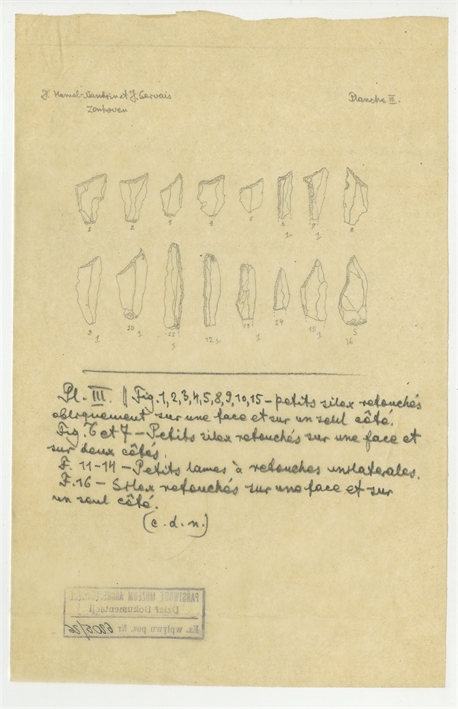 J. Hamal-Nandrin et J. Servais
Zonhoven
Planche III.
1 2 3 4 5 6 7 8
1 1
9 10 11 12 13 14 15 16
1 1 3 1 3 5
Pl. III Fig. 1, 2, 3, 4, 5, 8, 9, 10, 15 – petits silex retouchés
obliquement sur une face et sur un seul côté.
Fig. 6 et 7 – Petits silex retouchés sur une face et
sur deux côtés.
F. 11-14 – Petits lames à retouches unilaterales.
F. 16 – Silex retouchés sur une face et sur
un seul côté.
(c. d. n.)
PAŃSTWOWE MUZEUM
Dział Dokumentacji
Ks. wpływu poz. Nr